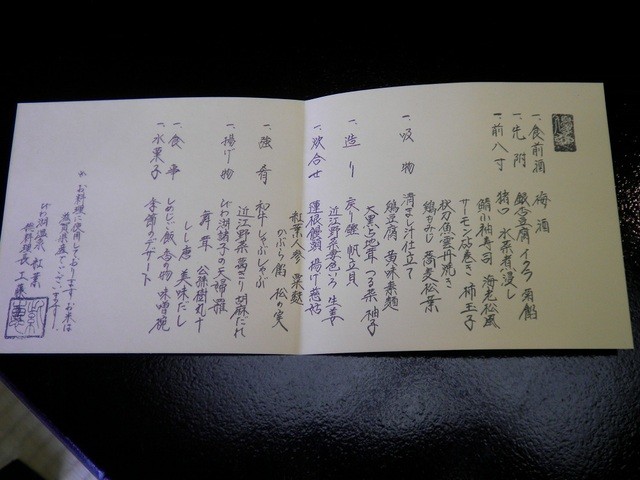 一、食前酒 梅酒
一、先附 銀杏豆腐 イクラ 菊餡
猪口 水菜煮浸し
一、前八寸 鯖小袖寿司 海老松風
サーモン砧巻き 柿玉子
秋刀魚雲丹焼き
鶏もみじ 蕎麦松葉
一、吸物 清まし汁仕立て
鶏豆腐 黄味素麺
大黒占地茸 つる菜 柚子
一、造り 戻り鰹 帆立貝
近江野菜 妻色いろ 生姜
一、炊合せ 蓮根饅頭 揚げ慈姑
紅葉人参 粟麩
かぶら餡 松の実
一、強肴 和牛しゃぶしゃぶ
近江野菜 葛きり 胡麻だれ
一、揚げ物 びわ湖諸子の天婦羅
舞茸 公孫樹丸十
しし唐 美味だし
一、食事 しめじ飯 香の物 味噌椀
一、水菓子 季節のデザート
※お料理に使用しておりますお米は
滋賀県産でございます。
びわ湖温泉 紅葉
総料理長 工藤